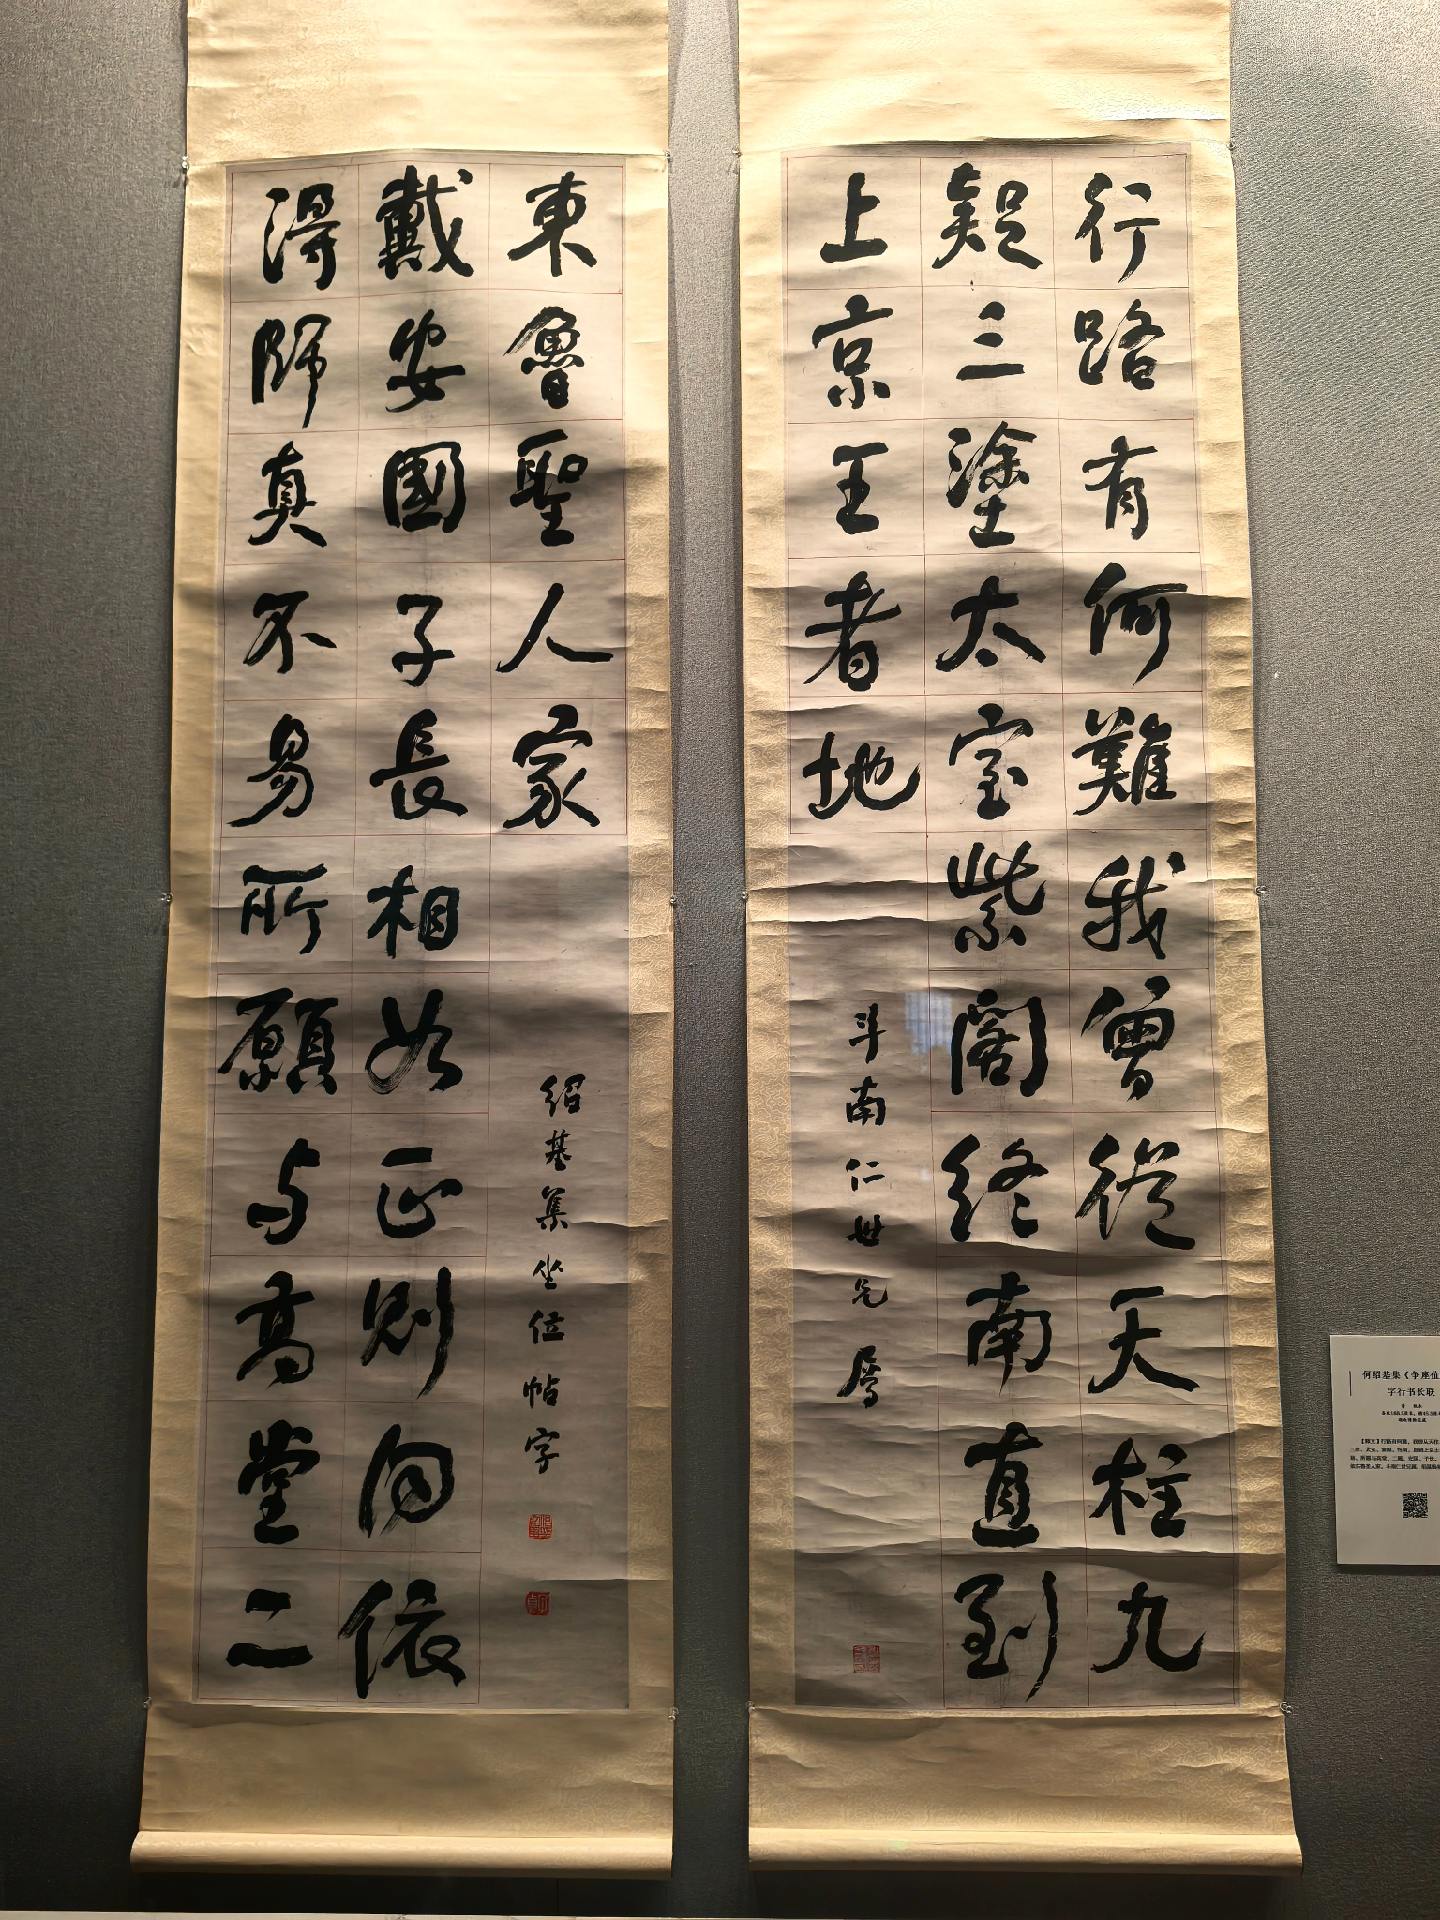 行路有何難我曾從天柱九
疑三塗太室紫閣終南直到
上京王者地
斗南仁世兄屬
得師真不易所願与高堂二
戴安國子長相如正則向依
東魯聖人家
紹基集坐位帖字
何绍基集《争座位
字行书长联